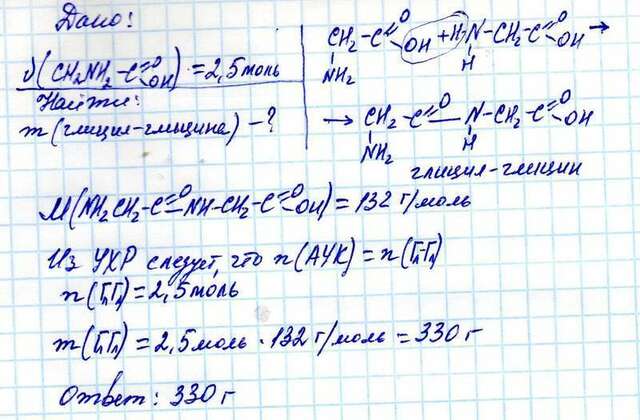 Дано:
ν(CH₂NH₂-C=O OH) = 2,5 моль
Найти:
m(глицил-глицина) - ?
CH₂-C=O OH + H-N-CH₂-C=O OH →
NH₂ H
→ CH₂-C=O-N-CH₂-C=O OH
NH₂ H
глицил-глицин
M(NH₂CH₂-C=O-NH-CH₂-C=O-OH) = 132 г/моль
Из УХР следует, что n(АУК) = n(ГлГл)
n(ГлГл) = 2,5 моль
m(ГлГл) = 2,5 моль · 132 г/моль = 330 г
Ответ: 330 г